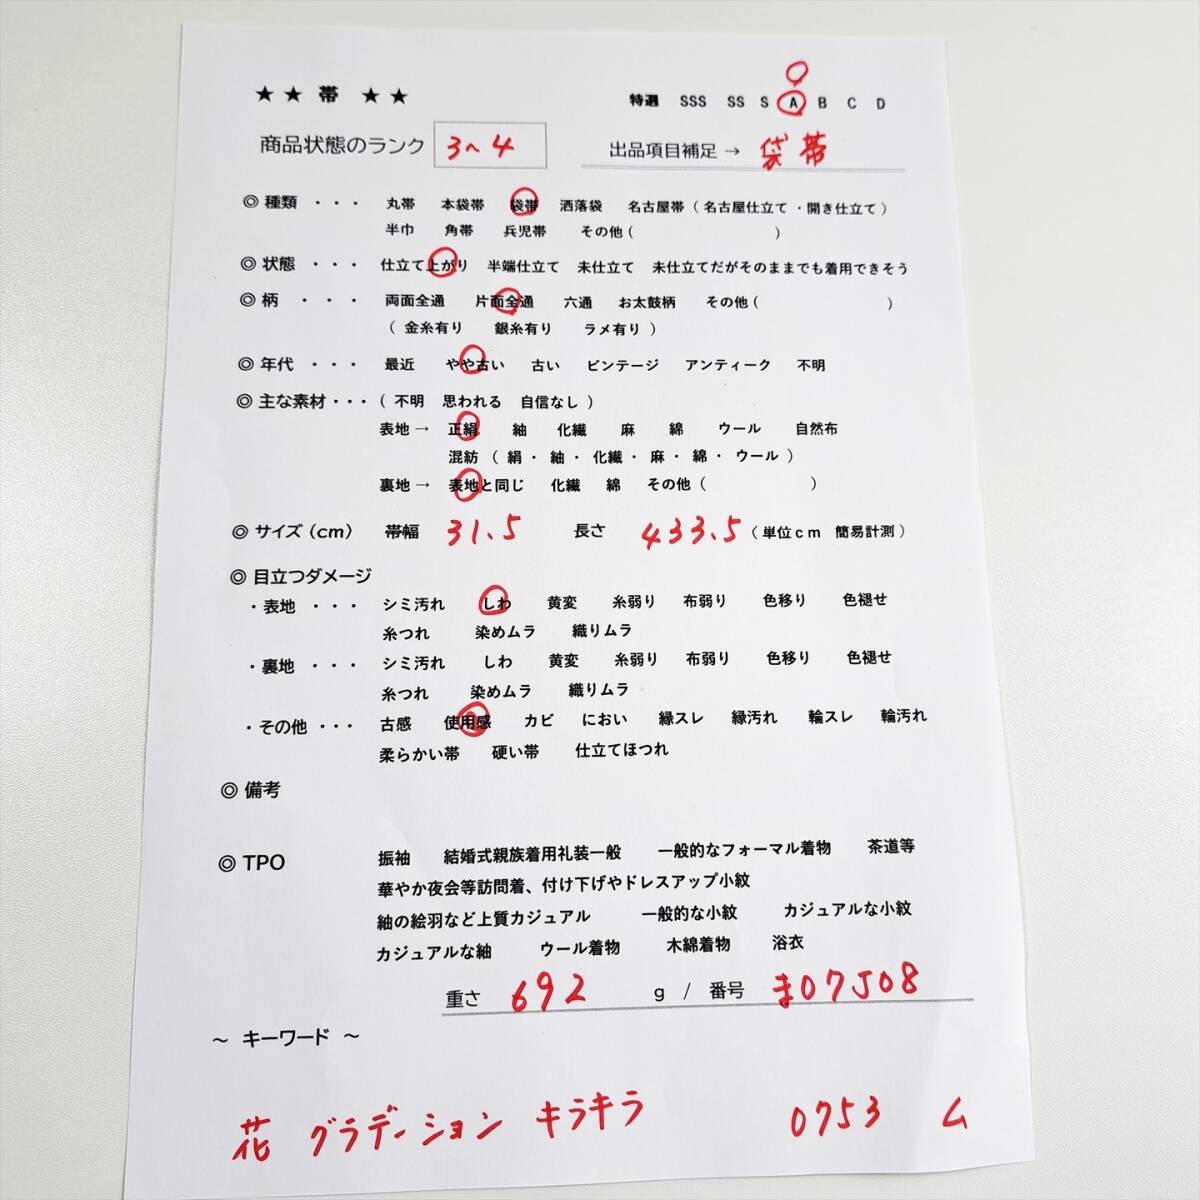 ★ ★ 帯 ★ ★
特選 SSS SS S A B C D
商品状態のランク 3~4 出品項目補足 → 袋帯
◎ 種類 ・・・ 丸帯 本袋帯 袋帯 洒落袋 名古屋帯（名古屋仕立て・開き仕立て）
半巾 角帯 兵児帯 その他（ ）
◎ 状態 ・・・ 仕立て上がり 半端仕立て 未仕立て 未仕立てだがそのままでも着用できそう
◎ 柄 ・・・ 両面全通 片面全通 六通 お太鼓柄 その他（ ）
（ 金糸有り 銀糸有り ラメ有り ）
◎ 年代 ・・・ 最近 やや古い 古い ビンテージ アンティーク 不明
◎ 主な素材・・・（ 不明 思われる 自信なし ）
表地 → 正絹 紬 化繊 麻 綿 ウール 自然布
混紡 （ 絹・ 紬・ 化繊・ 麻・ 綿・ ウール ）
裏地 → 表地と同じ 化繊 綿 その他（ ）
◎ サイズ（cm） 帯幅 31.5 長さ 433.5（単位ｃｍ 簡易計測）
◎ 目立つダメージ
・表地 ・・・ シミ汚れ しわ 黄変 糸弱り 布弱り 色移り 色褪せ
糸つれ 染めムラ 織りムラ
・裏地 ・・・ シミ汚れ しわ 黄変 糸弱り 布弱り 色移り 色褪せ
糸つれ 染めムラ 織りムラ
・その他 ・・・ 古感 使用感 カビ におい 縁スレ 縁汚れ 輪スレ 輪汚れ
柔らかい帯 硬い帯 仕立てほつれ
◎ 備考
◎ TPO 振袖 結婚式親族着用礼装一般 一般的なフォーマル着物 茶道等
華やか夜会等訪問着、付け下げやドレスアップ小紋
紬の絵羽など上質カジュアル 一般的な小紋 カジュアルな小紋
カジュアルな紬 ウール着物 木綿着物 浴衣
重さ 692 g / 番号 ま07J08
～ キーワード ～
花 グラデーション キラキラ 0753 ム